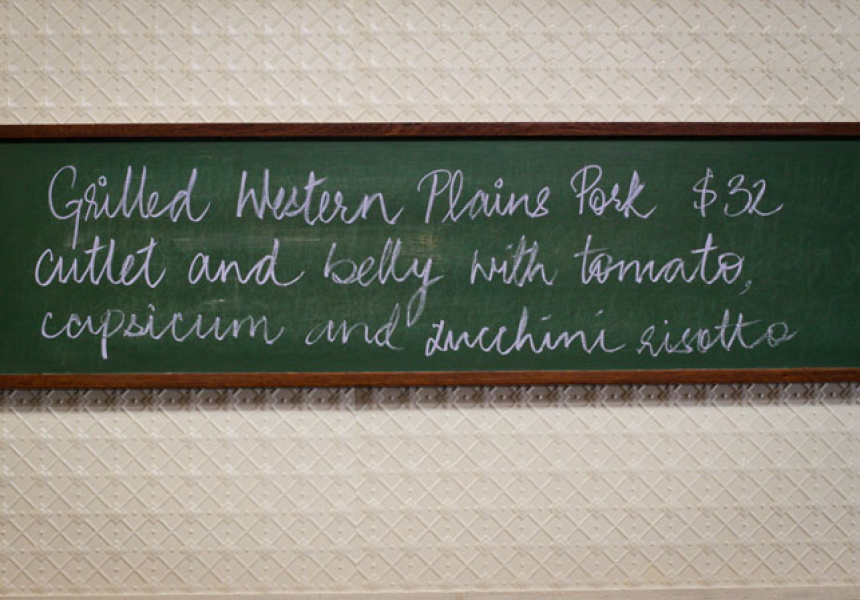 Grilled Western Plains Pork $32
cutlet and belly with tomato,
capsicum and zucchini risotto